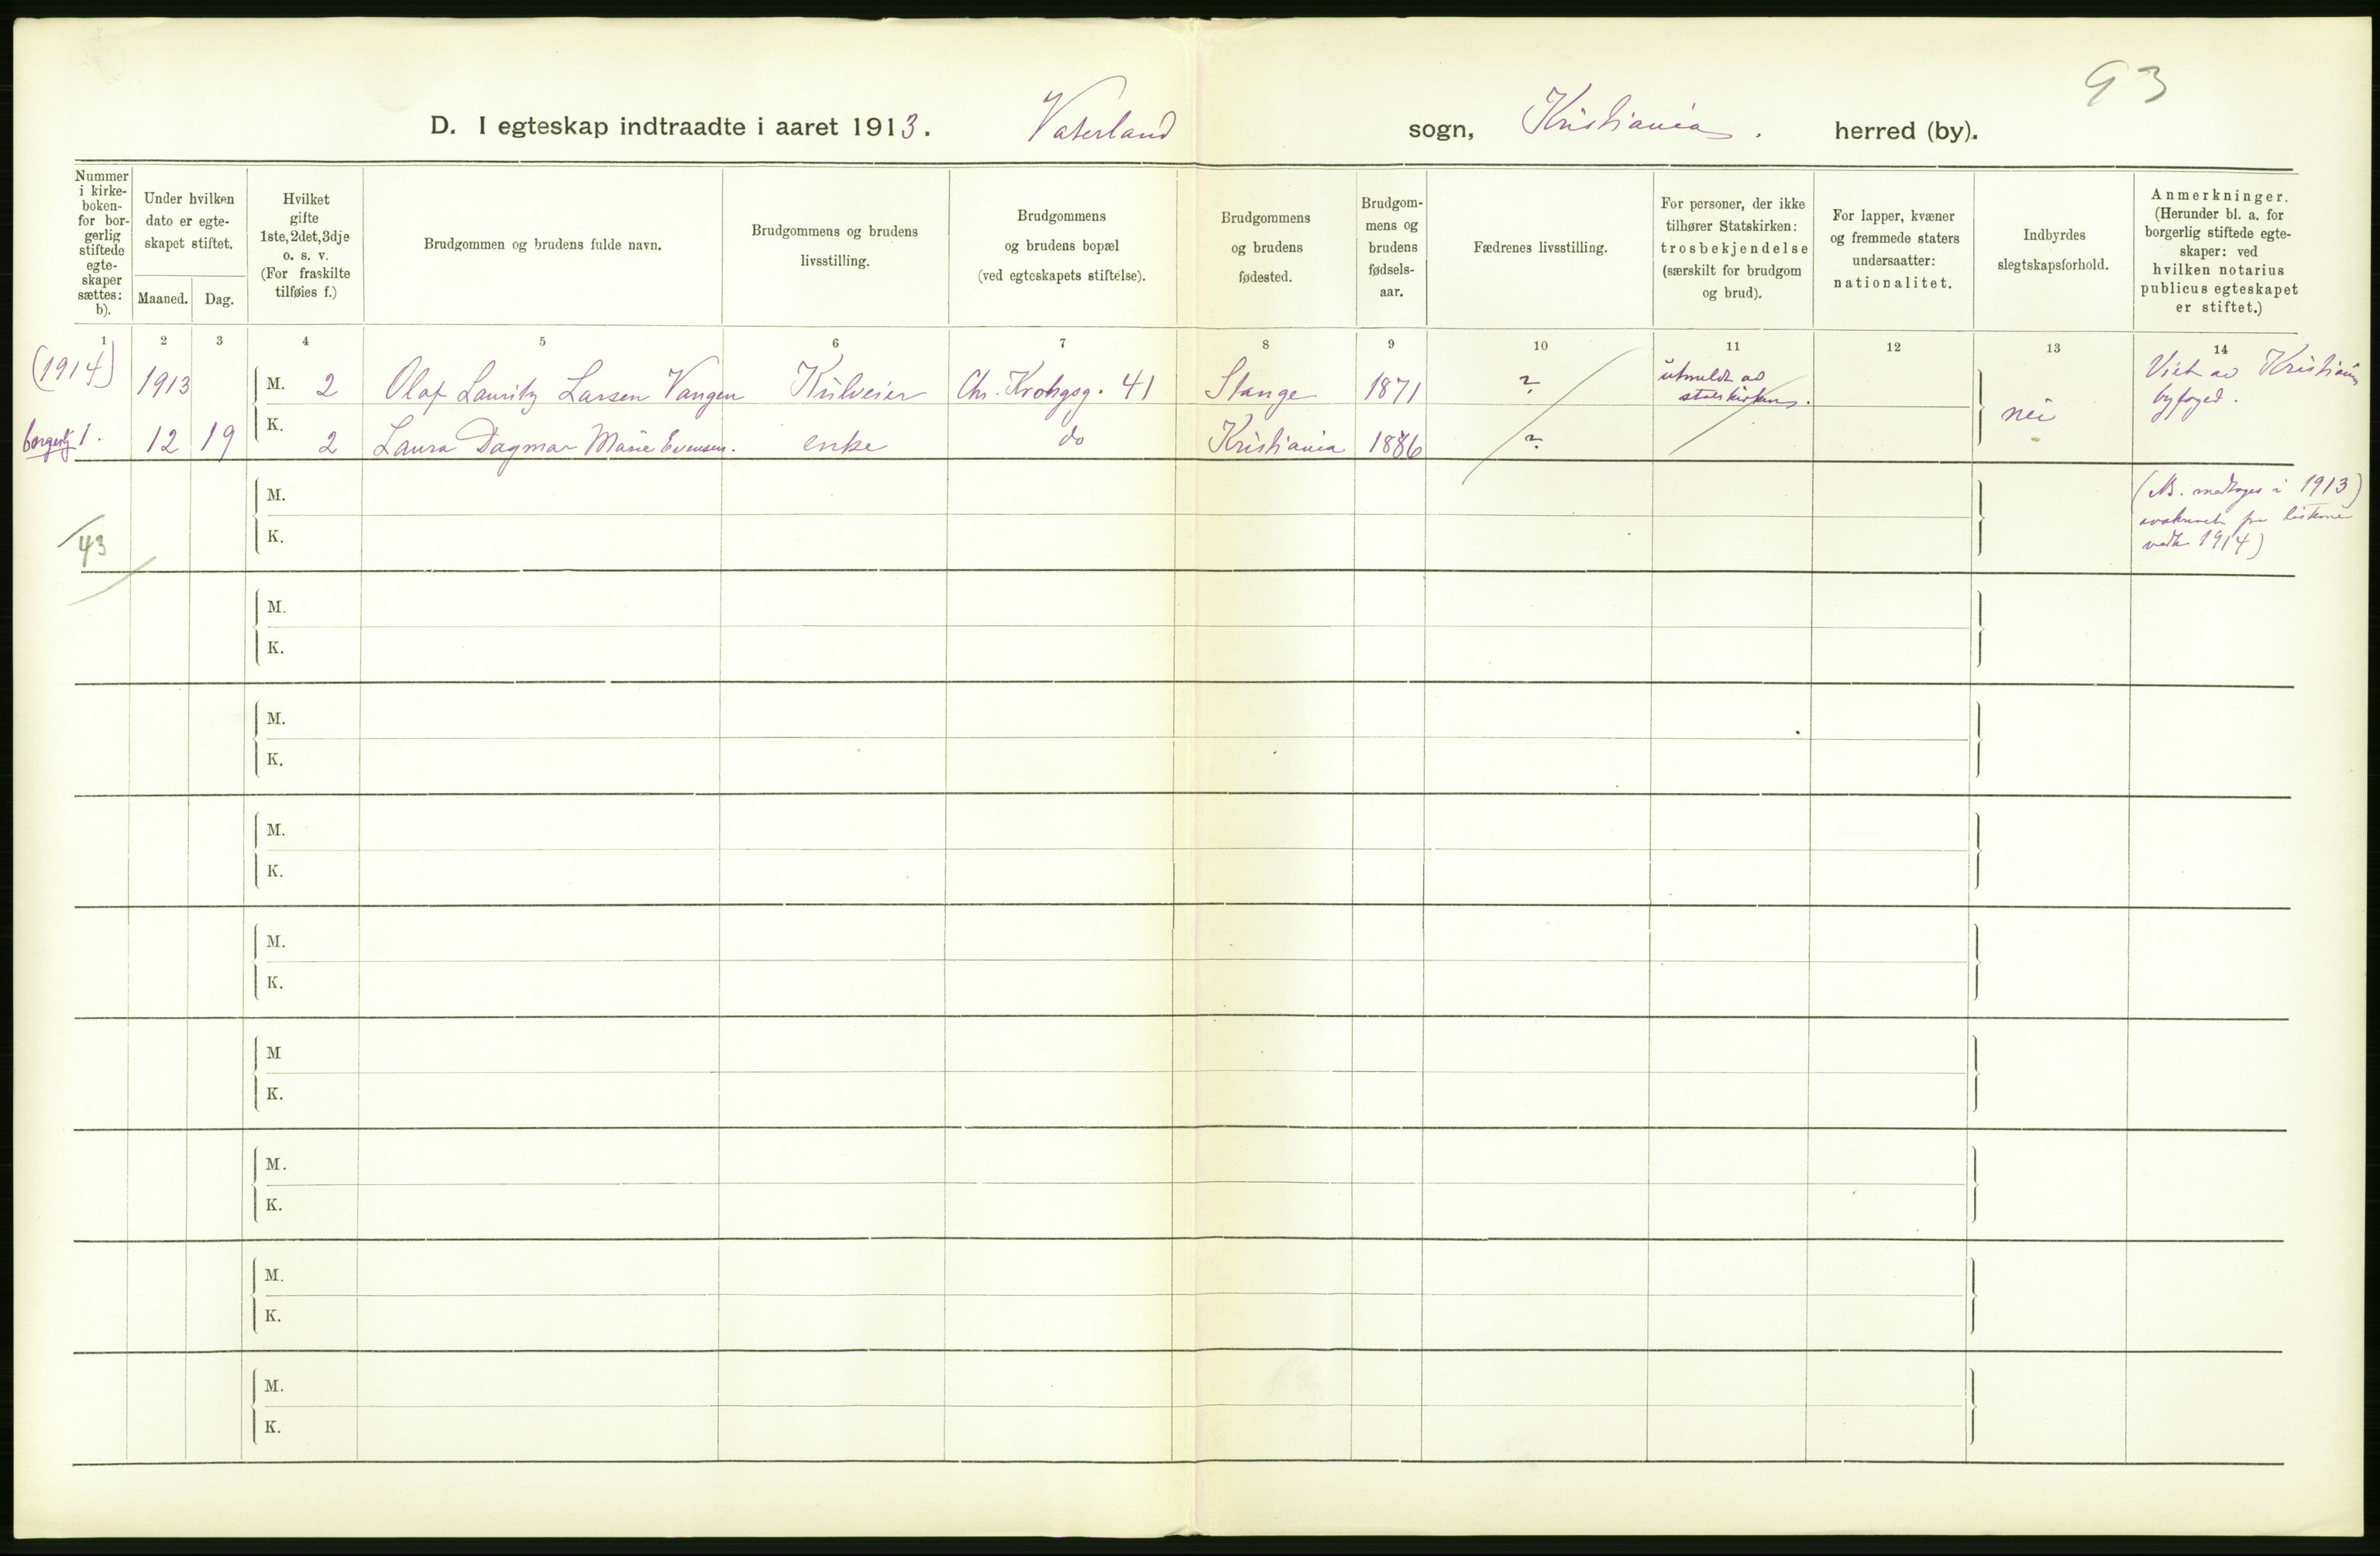 93
D. I egteskap indtraadte i aaret 1913. Vaterland sogn, Kristiania. herred (by).
Nummer
i kirke-
boken-
for bor-
gerlig
stiftede
egte-
skaper
sættes:
b).
Under hvilken
dato er egte-
skapet stiftet.
Maaned. Dag.
Hvilket
gifte
1ste, 2det, 3dje
o. s. v.
(For fraskilte
tilføies f.)
Brudgommen og brudens fulde navn.
Brudgommens og brudens
livsstilling.
Brudgommens
og brudens bopæl
(ved egteskapets stiftelse).
Brudgommens
og brudens
fødested.
Brudgom-
mens og
brudens
fødsels-
aar.
Fædrenes livsstilling.
For personer, der ikke
tilhører Statskirken:
trosbekjendelse
(særskilt for brudgom
og brud).
For lapper, kvæner
og fremmede staters
undersaatter:
nationalitet.
Indbyrdes
slegtskapsforhold.
Anmerkninger.
(Herunder bl. a. for
borgerlig stiftede egte-
skaper: ved
hvilken notarius
publicus egteskapet
er stiftet.)
1 2 3 4 5 6 7 8 9 10 11 12 13 14
(1914) 1913 M. 2 Olaf Lauritz Larsen Vangen Kulveier Chr. Krohgsg. 41 Stange 1871 ?
utmeldt av
statskirken.
Viet av Kristiania
byfoged.
borgerlig 1. 12 19 K. 2 Laura Dagmar Marie Evensen. enke do Kristiania 1886 ? nei
(NB. medtages i 1913)
fra listerne
vedk. 1914)
M.
43
K.
M.
K.
M.
K.
M.
K.
M.
K.
M
K.
M.
K.
M.
K.
M.
K.